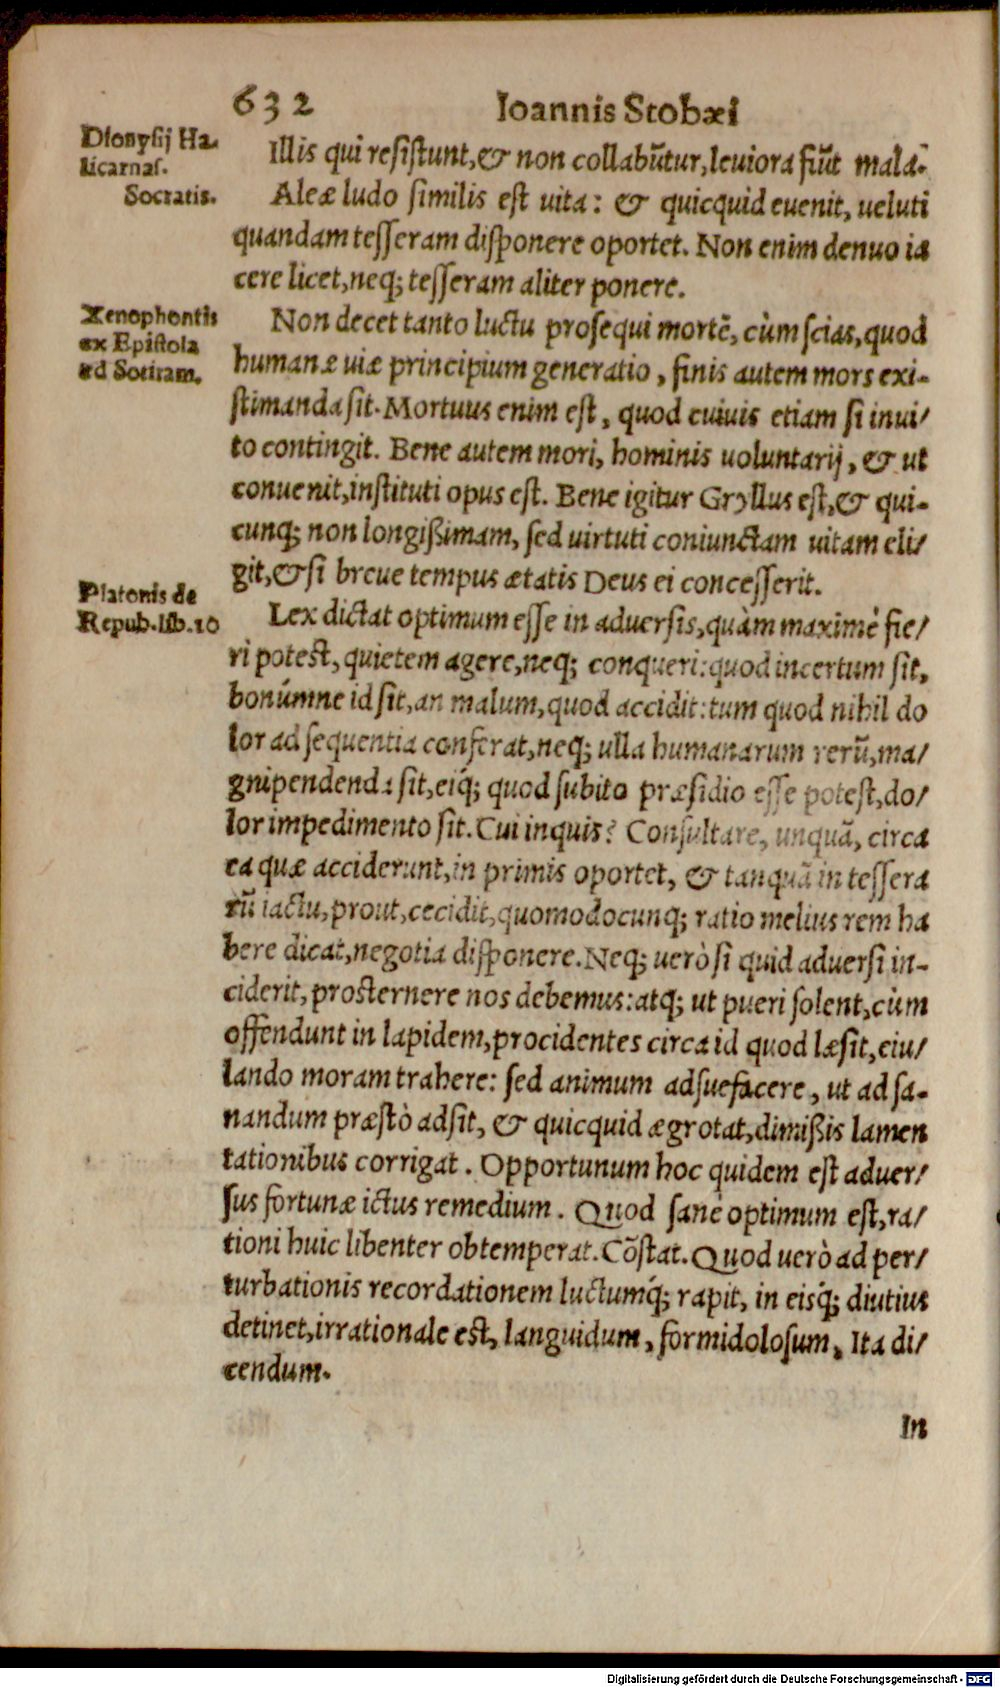 632 Ioannis Stobæi
Dionysij Ha-
licarnas.
Socratis.
Illis qui resistunt,& non collabũtur,leuiora fiũt mala.
Aleæ ludo similis est uita: & quicquid euenit, ueluti
quandam tesseram disponere oportet. Non enim denuo ia
cere licet,neq; tesseram aliter ponere.
Xenophontis
ex Epistola
ad Sotiram.
Non decet tanto luctu prosequi mortẽ, cùm scias,quod
humanæ uiæ principium generatio, finis autem mors exi-
stimanda sit. Mortuus enim est, quod cuiuis etiam si inui/
to contingit. Bene autem mori, hominis uoluntarij, & ut
conuenit,instituti opus est. Bene igitur Gryllus est,& qui-
cunq; non longißimam, sed uirtuti coniunctam uitam eli/
git,& si breue tempus ætatis Deus ei concesserit.
Platonis de
Repub.lib.10
Lex dictat optimum esse in aduersis,quàm maximè fie/
ri potest,quietem agere,neq; conqueri:quod incertum sit,
bonúmne id sit,an malum,quod accidit:tum quod nihil do
lor ad sequentia conferat,neq; ulla humanarum rerũ,ma/
gnipendenda sit,eiq́; quod subito præsidio esse potest,do/
lor impedimento sit. Cui inquis? Consultare, unquã, circa
ea quæ acciderunt,in primis oportet, & tanquã in tessera
rũ iactu,prout,cecidit,quomodocunq; ratio melius rem ha
bere dicat,negotia disponere. Neq; uerò si quid aduersi in-
ciderit,prosternere nos debemus:atq; ut pueri solent,cùm
offendunt in lapidem,procidentes circa id quod læsit,eiu/
lando moram trahere: sed animum adsuefacere, ut ad sa-
nandum præstò adsit, & quicquid ægrotat,dimißis lamen
tationibus corrigat. Opportunum hoc quidem est aduer/
sus fortunæ ictus remedium. Quod sanè optimum est,ra/
tioni huic libenter obtemperat. Cõstat. Quod uerò ad per/
turbationis recordationem luctumq́; rapit, in eisq́; diutius
detinet,irrationale est, languidum, formidolosum, Ita di/
cendum.
In
Digitalisierung gefördert durch die Deutsche Forschungsgemeinschaft - DFG